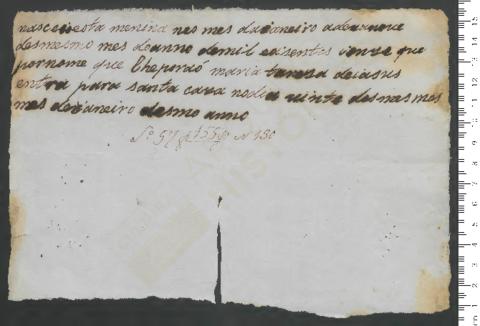 nasceu esta menina nes mes da janeiro adezanove
desmesmo mes do anno demil eaisentes vinve que
por nome que lhepuraó maria tereza dejasus
entra para santa caza nodia vinte desnes mes
mes dejaneiro desmo anno
Nº 150